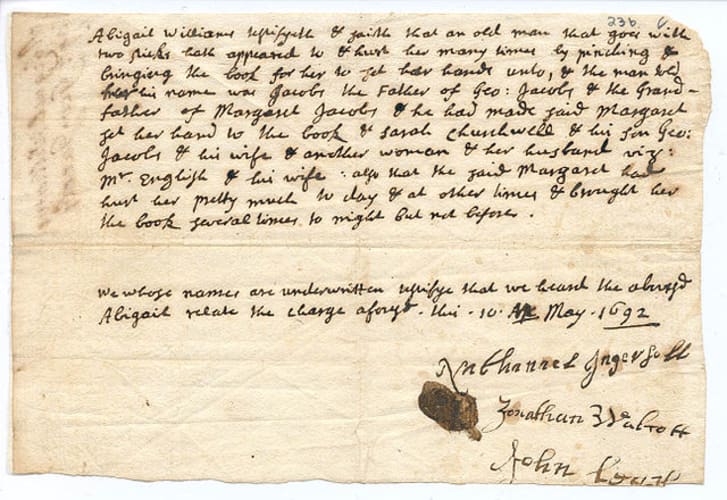 236
Abigail Williams testifyeth & saith that an old man that goes with
two sticks hath appeared to & hurt her many times by pinching &
bringing the book for her to set her hands unto, & the man told
her his name was Jacobs the Father of Geo: Jacobs & the Grand-
father of Margaret Jacobs & he had made said Margaret
set her hand to the book & Sarah Churchwell & his son Geo:
Jacobs & his wife & another woman & her husband viz:
Mr. English & his wife : also that the said Margaret had
hurt her pretty much to day & at other times & brought her
the book several times to night but not before .
we whose names are underwritten testifye that we heard the abovesd
Abigail relate the charge aforesd . this . 10 . May . 1692
Nathaniel Ingersoll
Jonathan Walcott
John